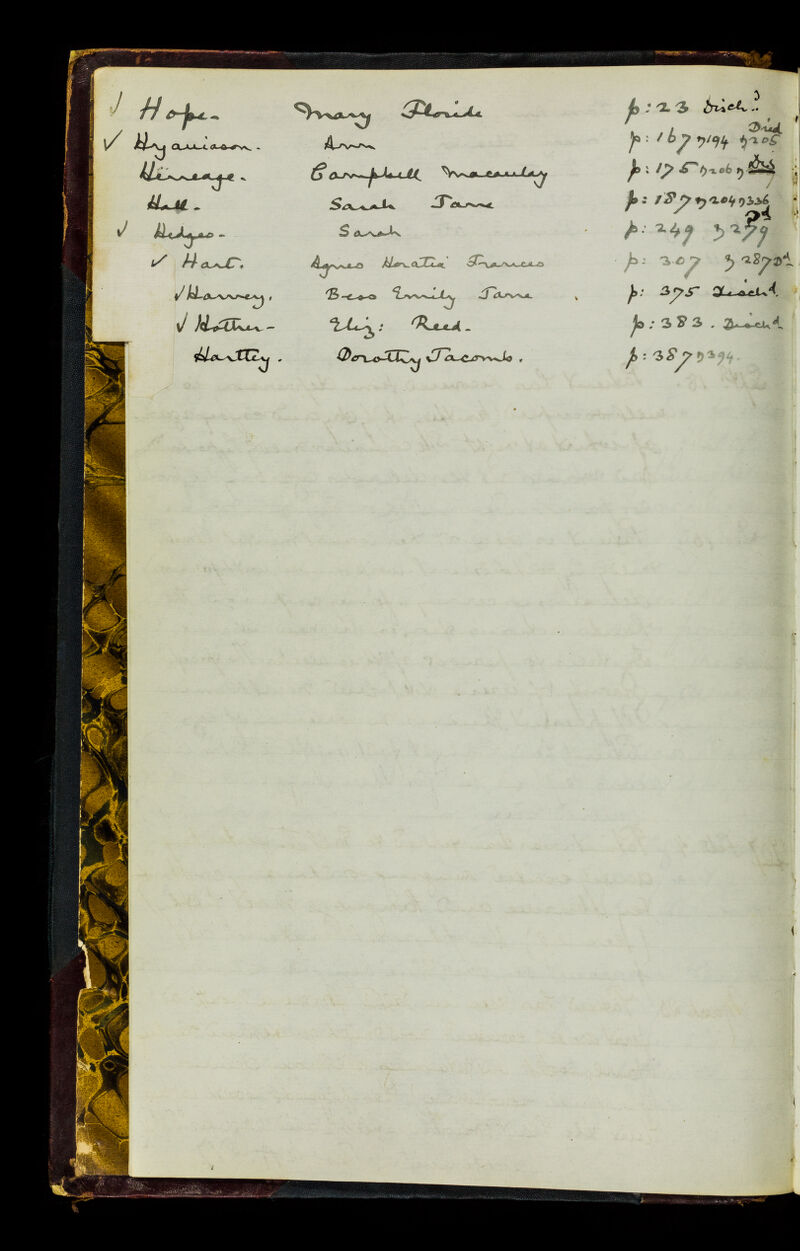 ✓ Hope - Mary Floride p: 23 Disch.
✓ Hyauiason - Ann p: 167 & 194 & 205 Died
Henneage - Campbell Macaulay p: 175 & 206 &
Hall - Sarah Jane p: 187 & 204 & 336
✓ Hedges - Sarah p: 249 & 279
✓ Hart. Agnes Horatia Frances p: 307 & 287
✓ Harvey, Bess Emily Jane p: 375 Disch d.
✓ Hother - Eliz: Reed. p: 383. Disch d.
Hartley. Dorothy Jacomb. p: 387 & 394.